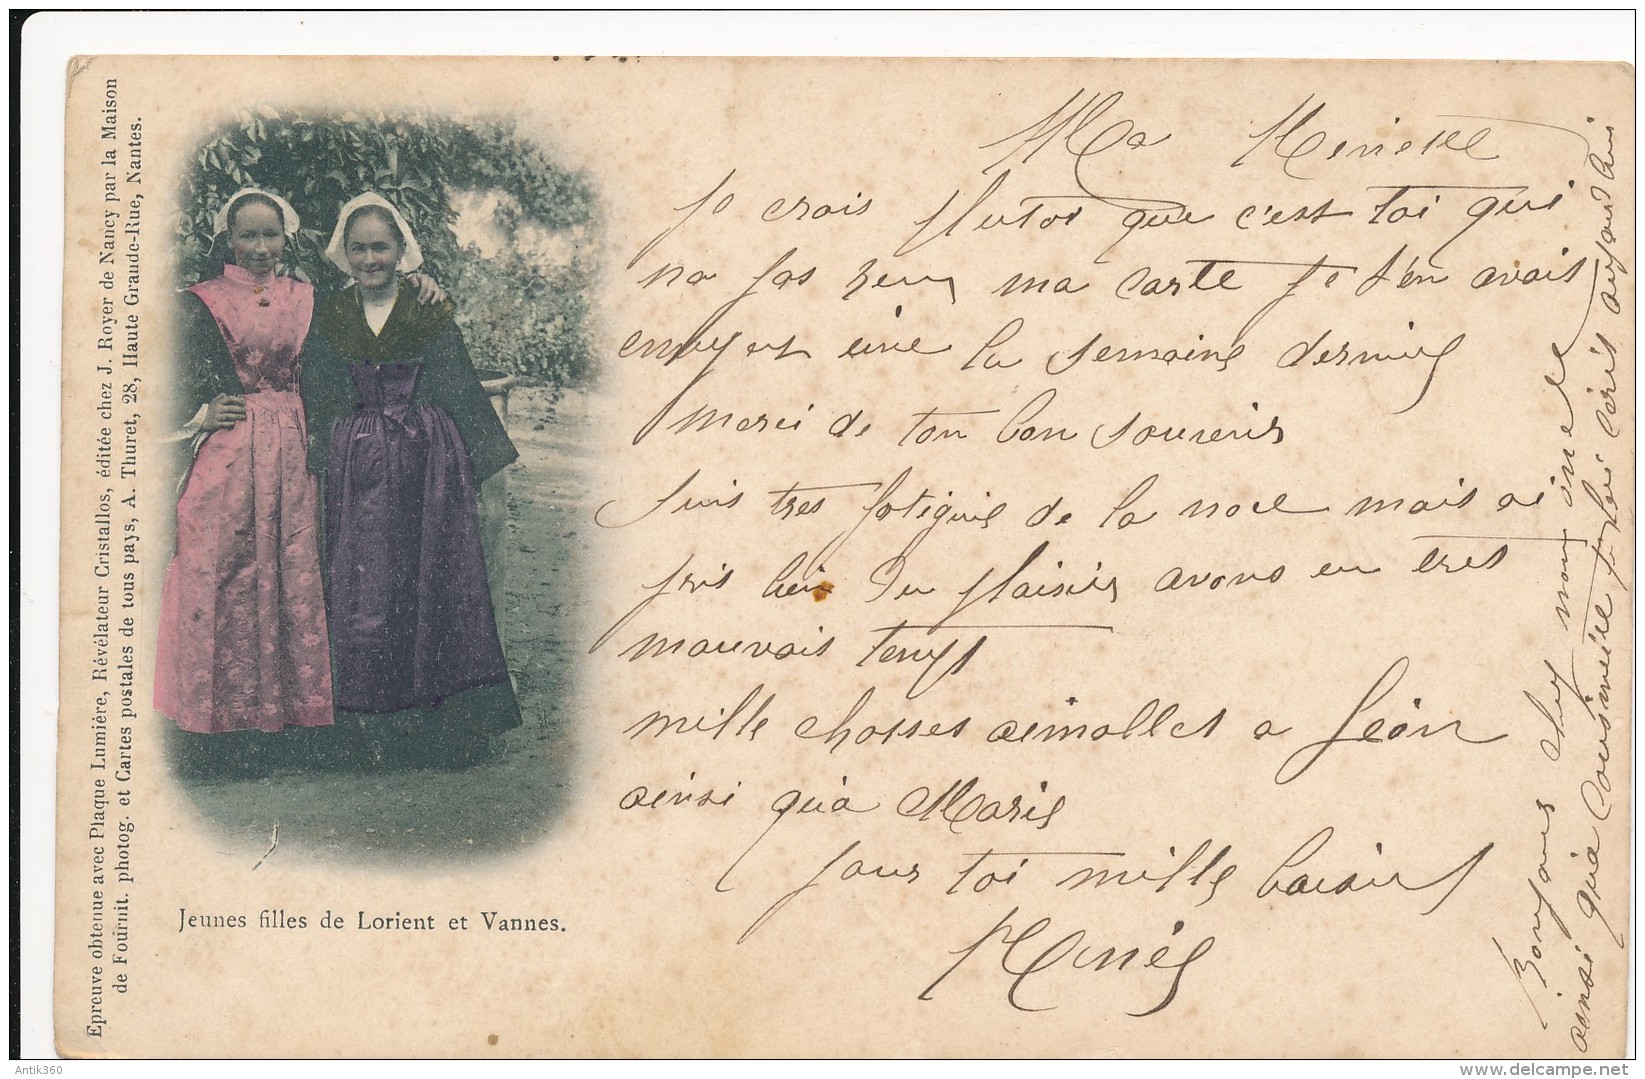 Epreuve obtenue avec Plaque Lumière, Révélateur Cristallos, éditée chez J. Royer de Nancy par la Maison
de Fournit. photog. et Cartes postales de tous pays, A. Thuret, 28, Haute Grande-Rue, Nantes.
Jeunes filles de Lorient et Vannes.
Ma
Je crois plutot que c'est toi qui
na pas reçu ma carte je t'en avais
envoyer une la semaine dernière
merci de ton bon souvenir
Suis tres fatiguié de la noce mais ai
pris bien du plaisir avons eu tres
mauvais temps
mille chosses aimalles a Léon
ainsi qua Marie
pour toi mille baisers
Bonjour chez mon oncle
ainsi qua Cousine écris aujourd'hui
Antik360
delcampe.net